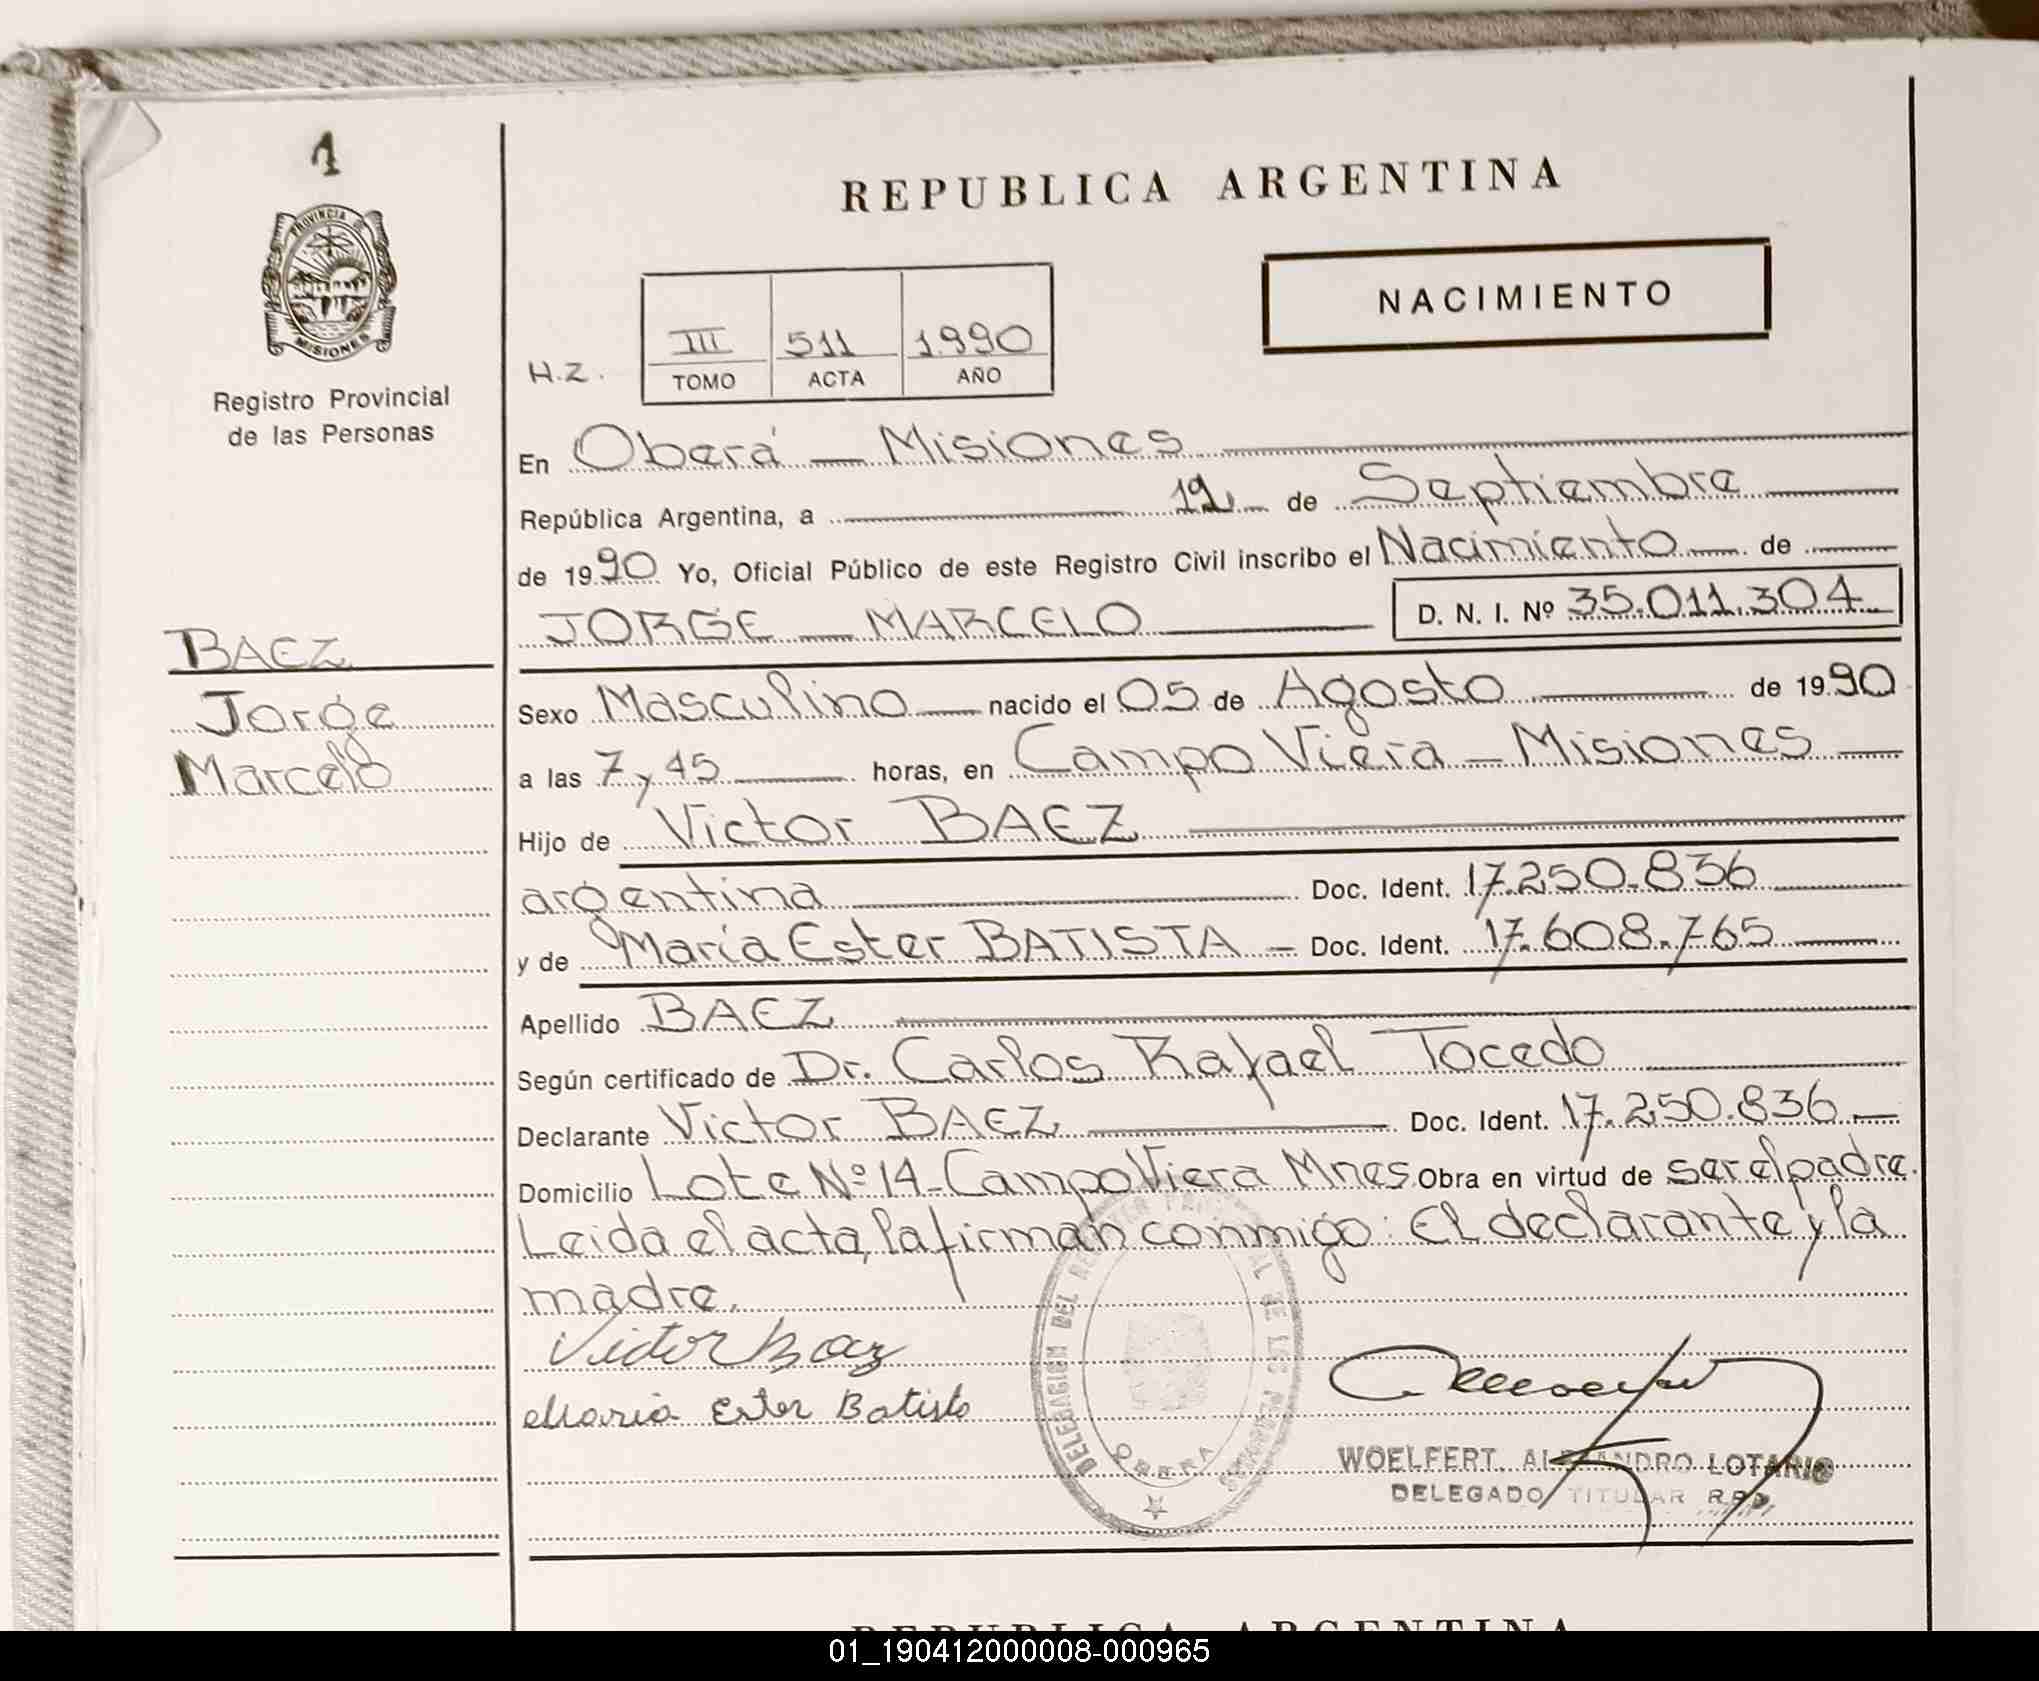 1
PROVINCIA DE
MISIONES
Registro Provincial
de las Personas
REPUBLICA ARGENTINA
NACIMIENTO
H.Z.
III 511 1.990
TOMO ACTA AÑO
En Oberá — Misiones
República Argentina, a 12 de Septiembre
de 1990 Yo, Oficial Público de este Registro Civil inscribo el Nacimiento de
JORGE — MARCELO D. N. I. Nº 35.011.304
BAEZ
Jorge
Marcelo
Sexo Masculino nacido el 05 de Agosto de 1990
a las 7 y 45 horas, en Campo Viera — Misiones
Hijo de Victor BAEZ
argentina Doc. Ident. 17.250.836
y de María Ester BATISTA — Doc. Ident. 17.608.765
Apellido BAEZ
Según certificado de Dr. Carlos Rafael Tocedo
Declarante Victor BAEZ Doc. Ident. 17.250.836
Domicilio Lote Nº 14 - Campo Viera Mnes Obra en virtud de ser el padre.
Leida el acta, la firman conmigo: El declarante y la
madre.
Victor Baez
Maria Ester Batista
DELEGACION DEL REGISTRO PROVINCIAL DE LAS PERSONAS
OBERA
WOELFERT, ALEJANDRO LOTARIO
DELEGADO TITULAR R.P.P.
REPUBLICA ARGENTINA
01_190412000008-000965